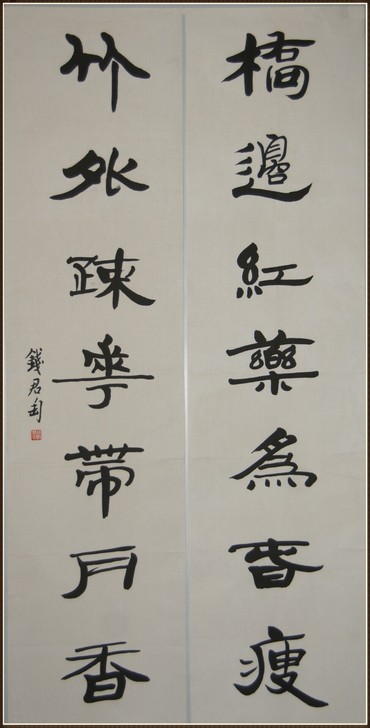 橋邊紅藥為旾瘦
竹外疎華帶月香
錢君匋